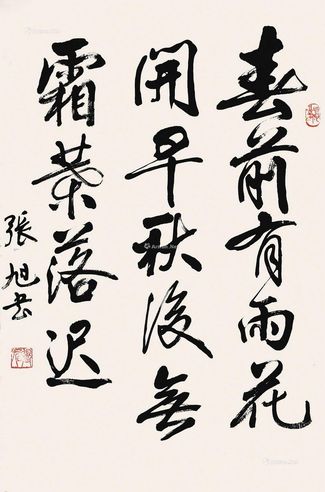 春前有雨花
開早秋後無
霜葉落迟
張旭书